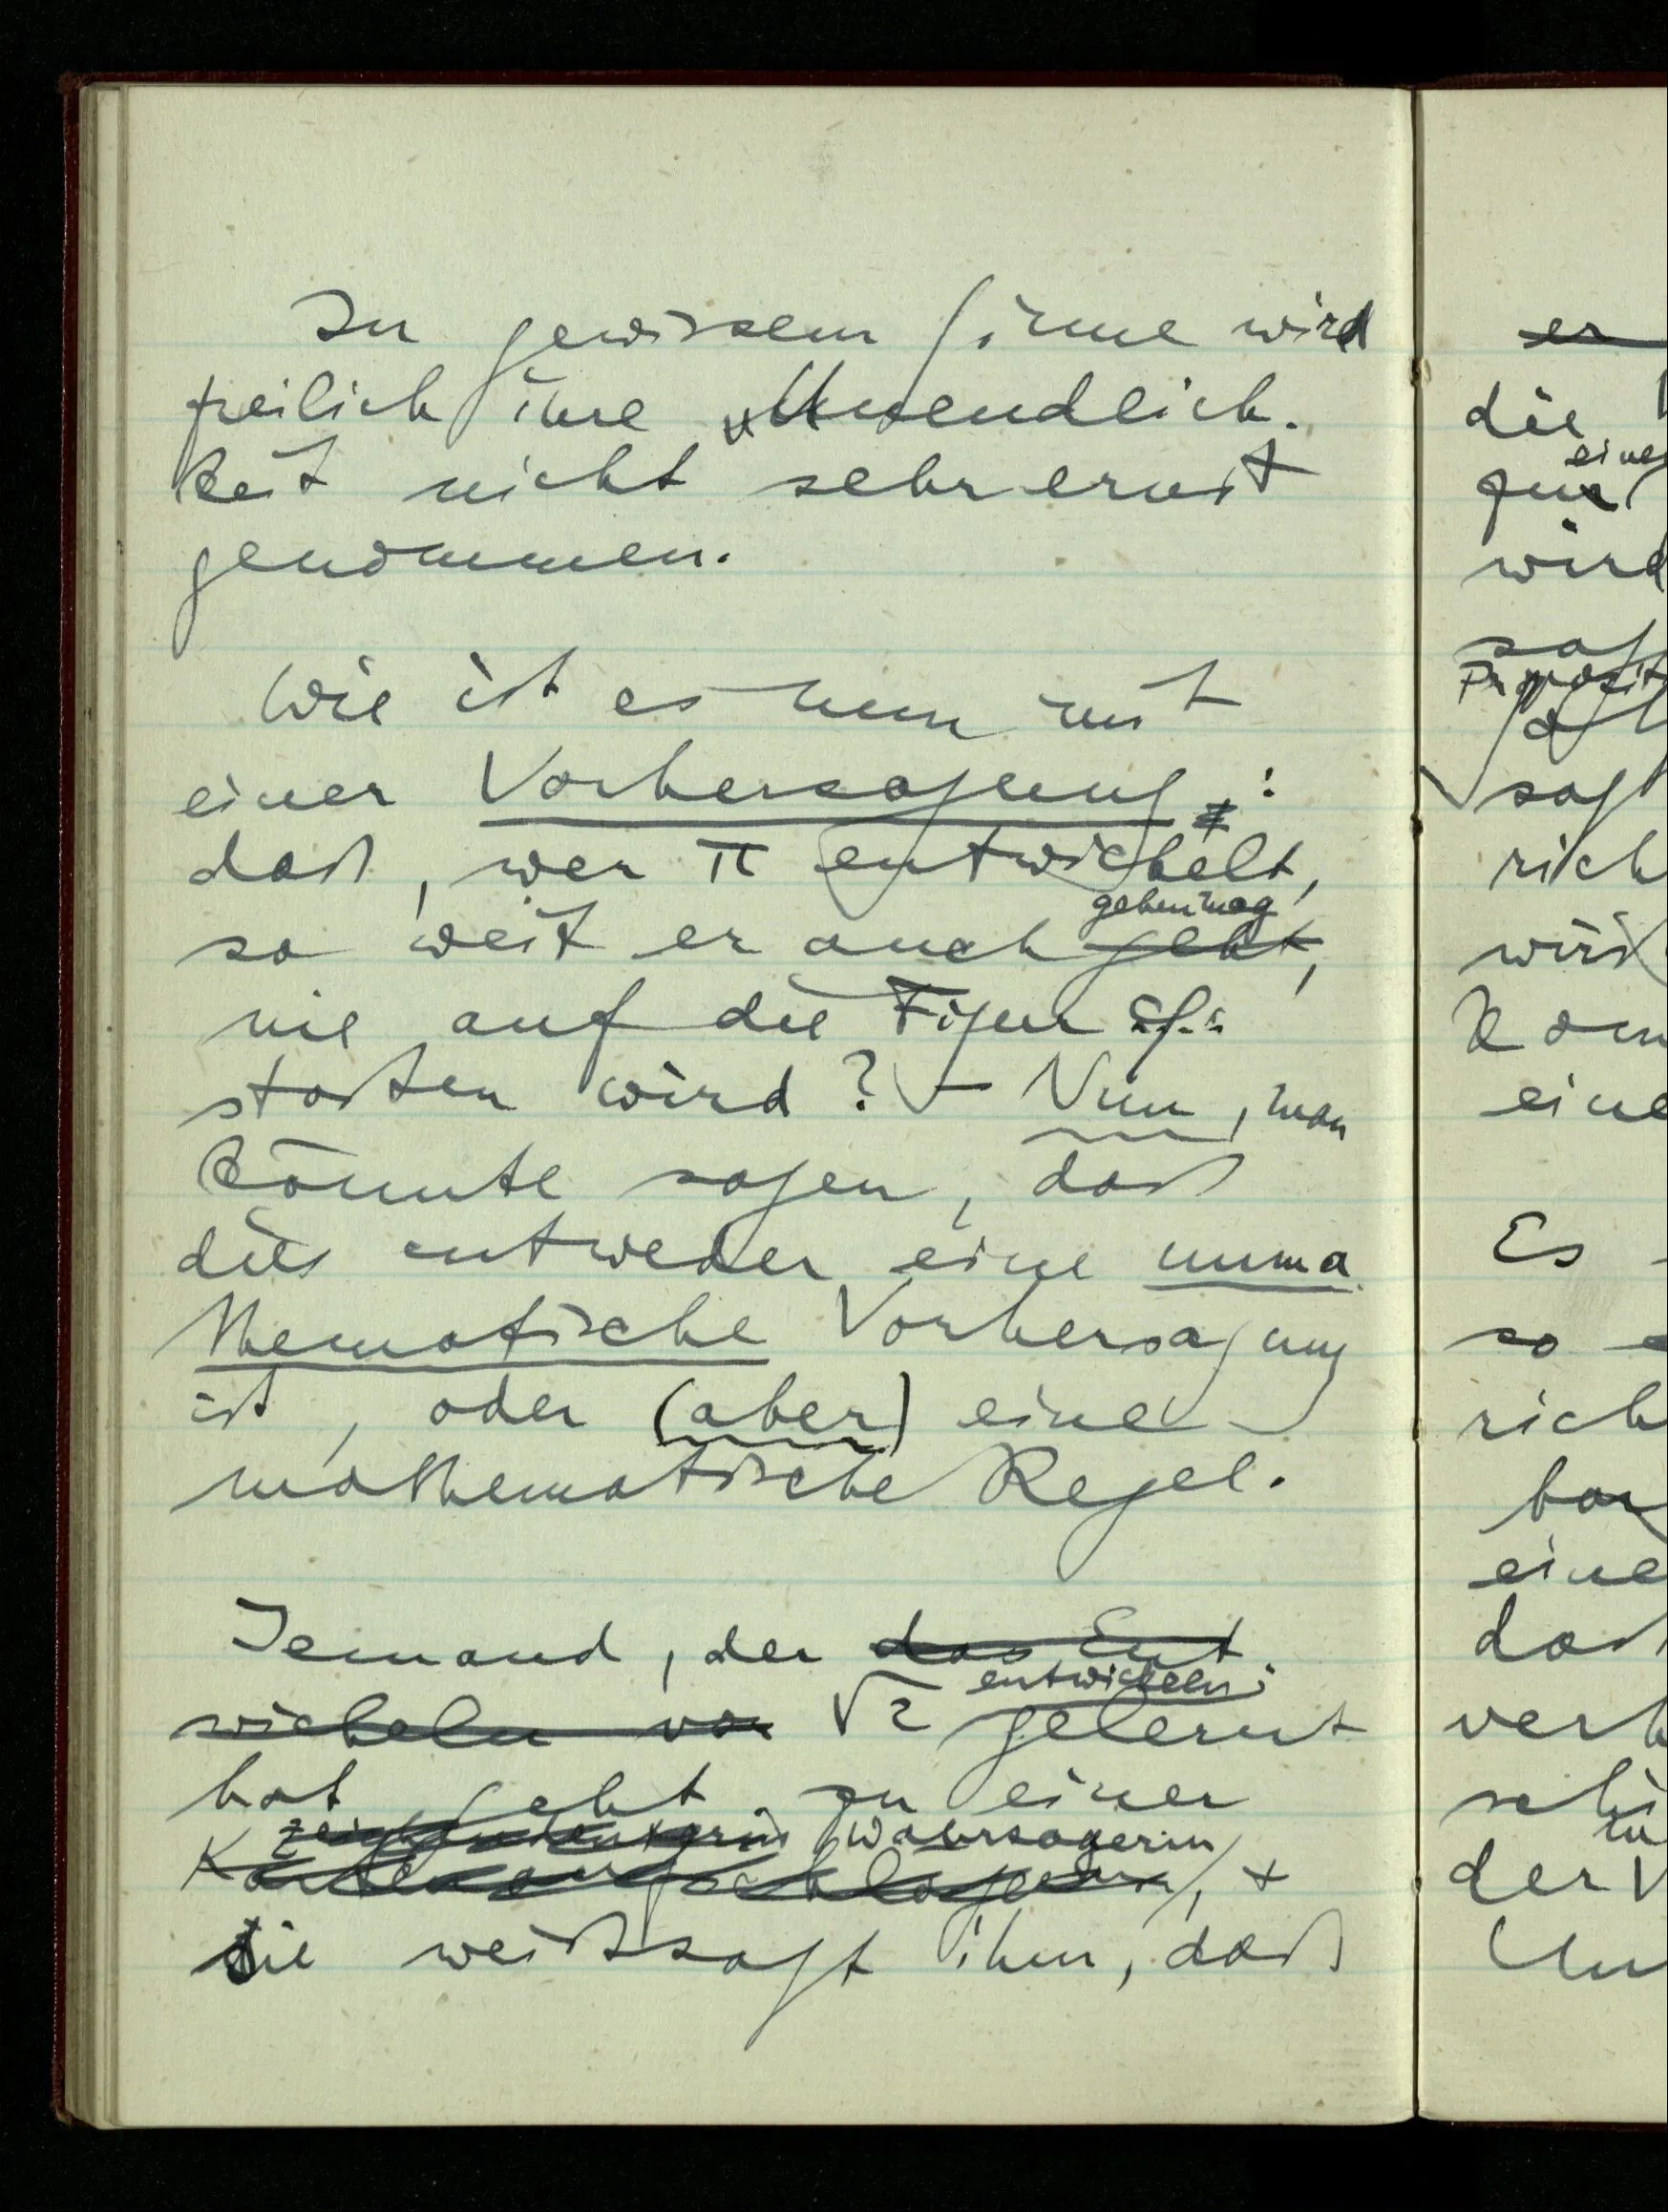 In gewissem Sinne wird
freilich ihre „Unendlich-
keit nicht sehr ernst
genommen.
Wie ist es nun mit
einer Vorhersagung:
daß, wer π entwickelt,
gehen mag
so weit er auch geht,
nie auf die Figur φ
stoßen wird? – Nun, man
könnte sagen, daß
dies entweder eine unma-
thematische Vorhersagung
ist, oder (aber) eine
mathematische Regel.
Jemand, der das Ent-
entwickeln
wickeln von √2 gelernt
hat, geht zu einer
Wahrsagerin
, +
sie weissagt ihm, daß
er
die
eine
für
wird
sagt
rich
wird
kom
eine
Es
so
rich
bar
eine
daß
der